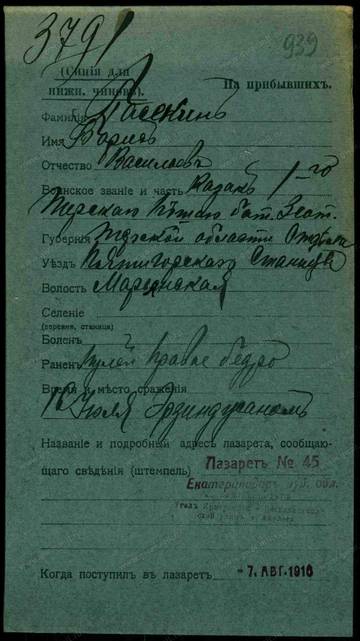 3791
939
(Синія для
нижн. чиновъ).
На прибывшихъ.
Фамилія Пасекинъ
Имя Борисъ
Отчество Васильевъ
Воинское званіе и часть Казакъ 1-го
Терскаго Пѣшаго бат. 3 сот.
Губернія Терской области Отдѣла
Уѣздъ Пятигорскаго Станица
Волость Марьинская
Селеніе
(деревня, станица)
Боленъ
Раненъ пулей правое бедро
Время и мѣсто сраженія
10 Іюля Эрзинджаномъ
Названіе и подробный адресъ лазарета, сообщаю-
щаго свѣдѣнія (штемпель) Лазаретъ № 45
Екатеринодаръ Куб. обл.
Уголъ
Когда поступилъ въ лазаретъ -7. АВГ. 1916